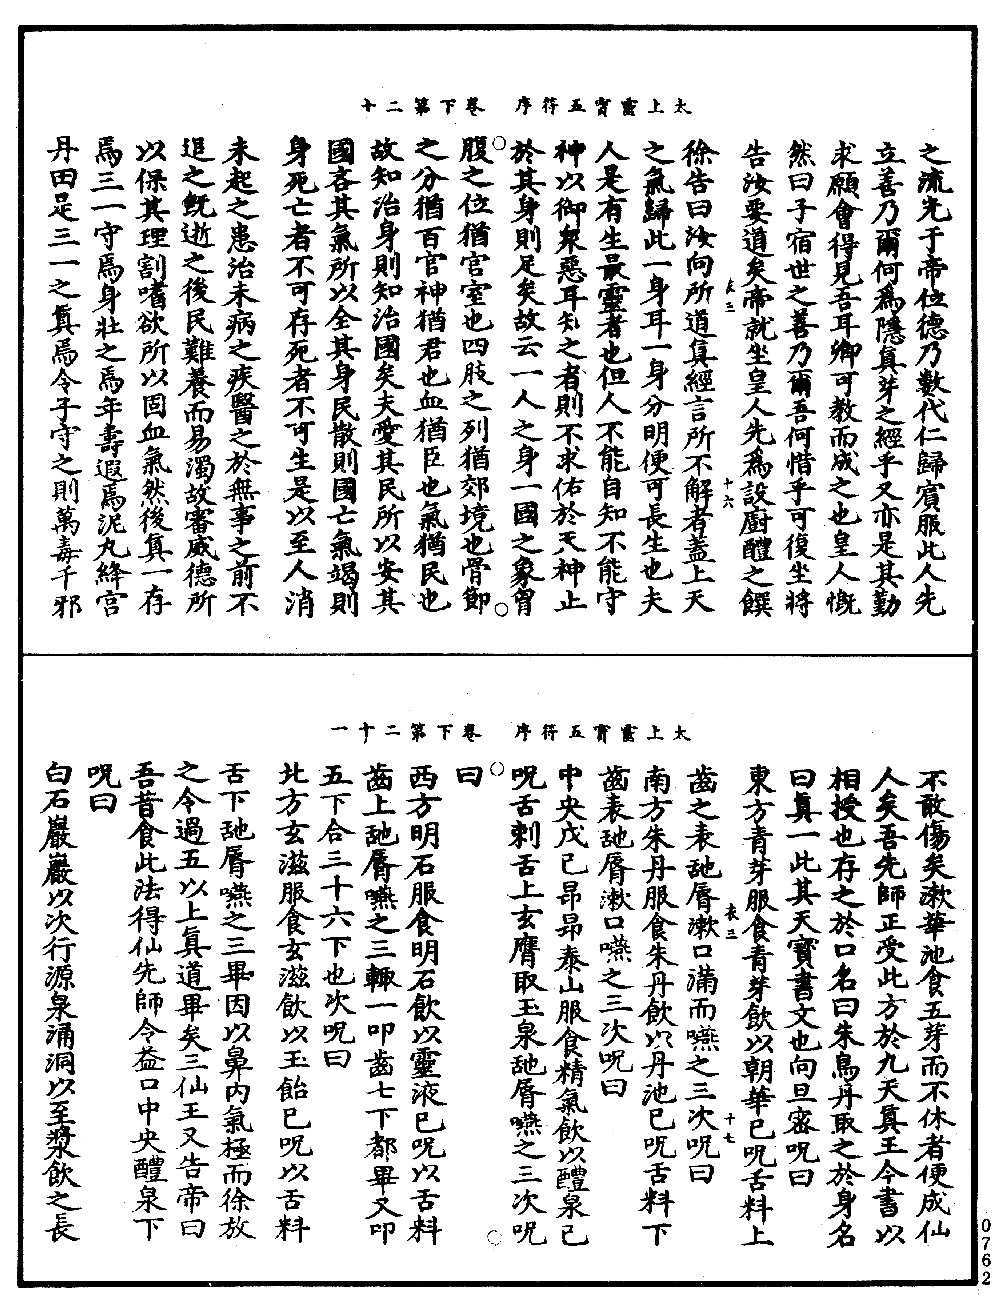 太上靈寶五符序　卷下第二十
之流光于帝位德乃數代仁歸賓服此人先
立善乃爾何爲隱真芽之經乎又亦是其勤
求願會得見吾耳卿可教而成之也皇人慨
然曰子宿世之善乃爾吾何惜乎可復坐將
告汝要道矣帝就坐皇人先爲設廚醴之饌
衣二
十六
徐告曰汝向所道真經言所不解者蓋上天
之氣歸此一身耳一身分明便可長生也夫
人是有生最靈者也但人不能自知不能守
神以御衆惡耳知之者則不求佑於天神止
於其身則足矣故云一人之身一國之象胷
腹之位猶宮室也四肢之列猶郊境也骨節
之分猶百官神猶君也血猶臣也氣猶民也
故知治身則知治國矣夫愛其民所以安其
國吝其氣所以全其身民散則國亡氣竭則
身死亡者不可存死者不可生是以至人消
未起之患治未病之疾醫之於無事之前不
追之既逝之後民難養而易濁故審威德所
以保其理割嗜欲所以固血氣然後真一存
焉三一守焉身壯之焉年壽遐焉泥丸絳宮
丹田是三一之真焉令子守之則萬毒千邪
太上靈寶五符序　卷下第二十一
不敢傷矣漱華池食五芽而不休者便成仙
人矣吾先師正受此方於九天真王今書以
相授也存之於口名曰朱鳥丹取之於身名
曰真一此其天寶書文也向旦密呪曰
東方青芽服食青芽飲以朝華已呪舌料上
衣三
十七
齒之表䑛脣漱口滿而嚥之三次呪曰
南方朱丹服食朱丹飲以丹池已呪舌料下
齒表䑛脣漱口嚥之三次呪曰
中央戊己昂昂泰山服食精氣飲以醴泉已
呪舌刺舌上玄膺取玉泉䑛脣嚥之三次呪
曰
西方明石服食明石飲以靈液已呪以舌料
齒上䑛脣嚥之三輙一叩齒七下都畢又叩
五下合三十六下也次呪曰
北方玄滋服食玄滋飲以玉飴已呪以舌料
舌下䑛脣嚥之三畢因以鼻內氣極而徐放
之令過五以上真道畢矣三仙王又告帝曰
吾昔食此法得仙先師令益口中央醴泉下
呪曰
白石巖巖以次行源泉涌洞以至漿飲之長
0762